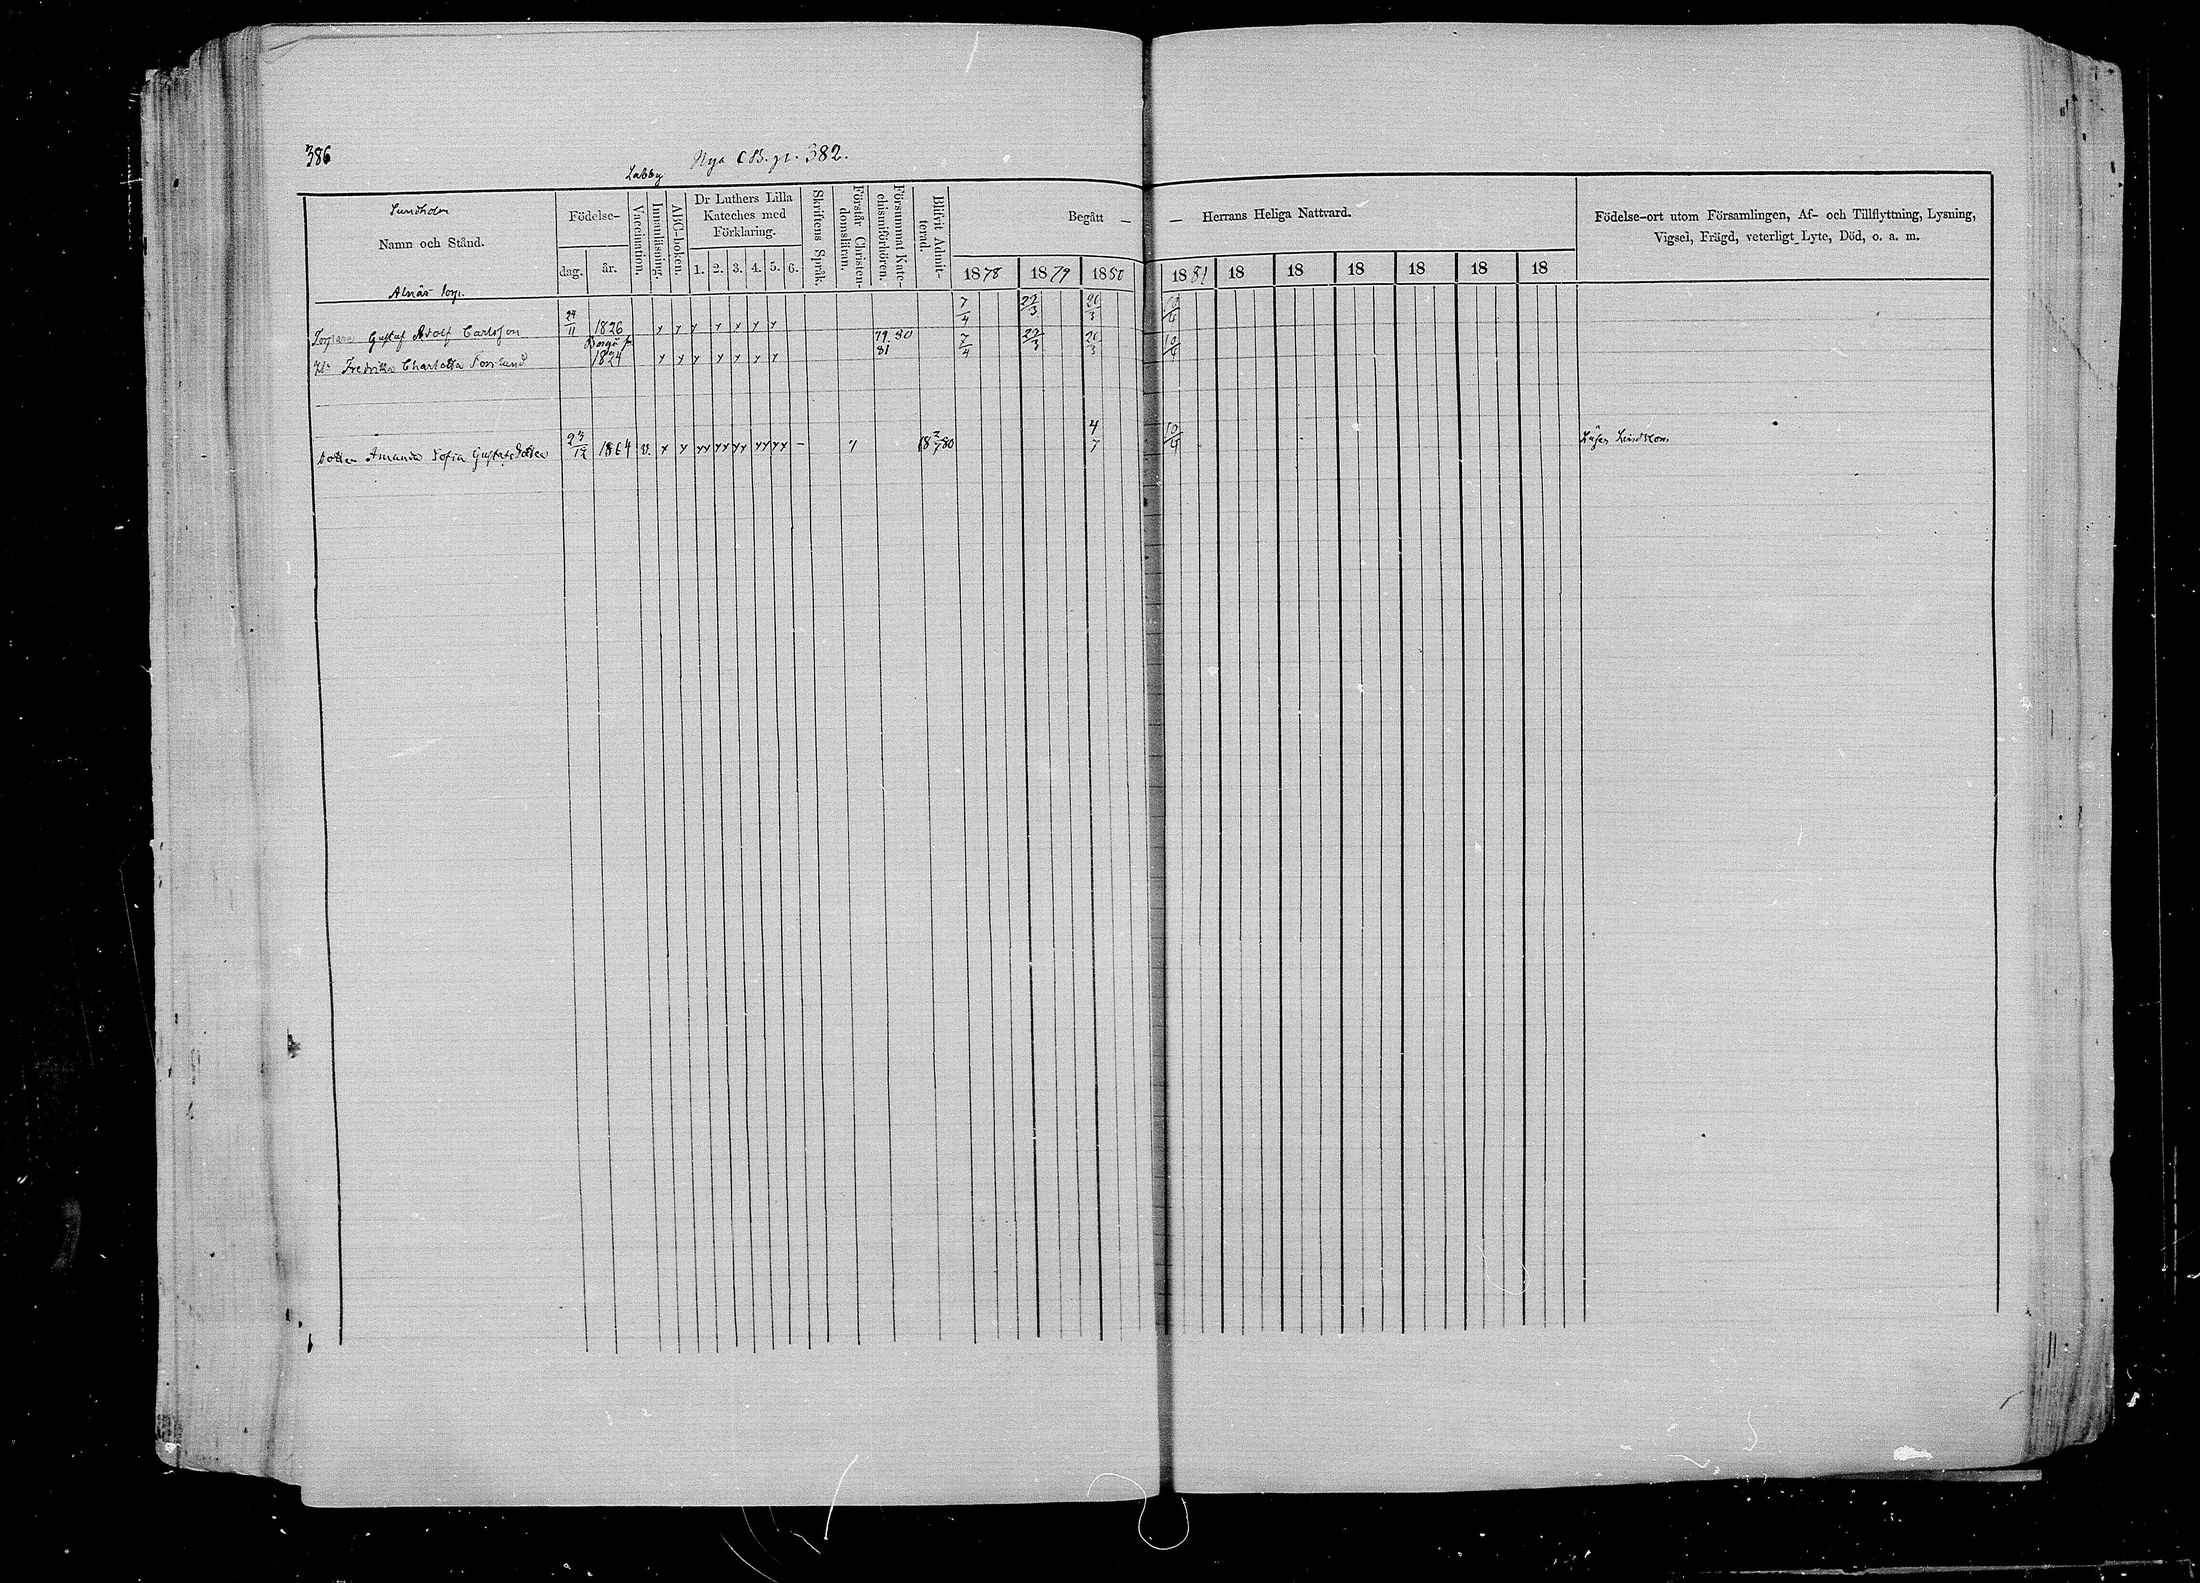 386
Nya C.B. p. 382.
Labby
Sundholm
Namn och Stånd.
Födelse-
dag. år.
Vaccination.
Innanläsning.
ABC-boken.
Dr Luthers Lilla
Kateches med
Förklaring.
1. 2. 3. 4. 5. 6.
Skriftens Språk.
Förstår Christen-
domsläran.
Försummat Kate-
chismiförhören.
Blifvit Admit-
terad.
Begått — — Herrans Heliga Nattvard.
1878 1879 1880 1881 18 18 18 18 18 18
Födelse-ort utom Församlingen, Af- och Tillflyttning, Lysning,
Vigsel, Frägd, veterligt Lyte, Död, o. a. m.
Alnäs torp.
Torparen Gustaf Adolf Carlsson 24/11 1826 y y y y y y y 7/4 23/3 20/3 10/4
Borgå
Fredrika Charlotta Forslund 1824 y y y y y y y 79. 80 81 7/4 23/3 20/3 10/4
Dotter Amanda Sofia Gustafsdotter 23/12 1864 v. y y yy yy yy yy yy – y 18 2/7 80 4/7 10/4